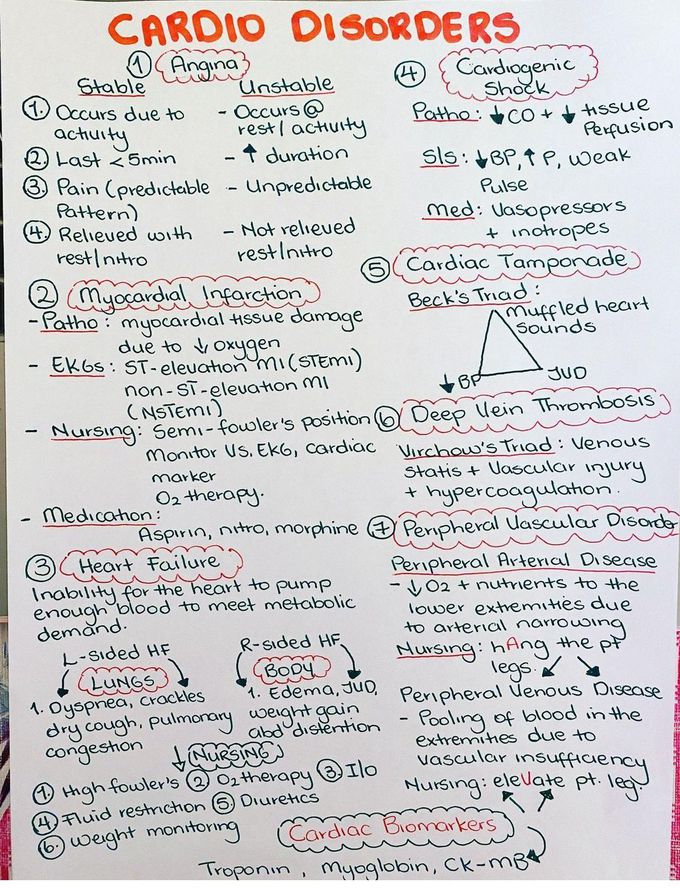 CARDIO DISORDERS
① Angina
Stable
① Occurs due to
activity
② Last < 5min
③ Pain (predictable
Pattern)
④ Relieved with
rest/nitro
Unstable
- Occurs @
rest/activity
- ↑ duration
- Unpredictable
- Not relieved
rest/nitro
② Myocardial Infarction
- Patho: myocardial tissue damage
due to ↓ oxygen
- EKGs: ST-elevation MI (STEMI)
non-ST-elevation MI
(NSTEMI)
- Nursing: Semi-fowler's position
Monitor VS, EKG, cardiac
marker
O2 therapy.
- Medication:
Aspirin, nitro, morphine
③ Heart Failure
Inability for the heart to pump
enough blood to meet metabolic
demand.
L-sided HF
LUNGS
1. Dyspnea, crackles
dry cough, pulmonary
congestion
R-sided HF
BODY
1. Edema, JVD,
weight gain
abd distention
↓ NURSING
① High fowler's ② O2 therapy ③ I/o
④ Fluid restriction ⑤ Diuretics
⑥ Weight monitoring
④ Cardiogenic
Shock
Patho: ↓ CO + ↓ tissue
Perfusion
S/s: ↓BP, ↑ P, weak
Pulse
Med: Vasopressors
+ inotropes
⑤ Cardiac Tamponade
Beck's Triad:
Muffled heart
sounds
↓ BP
JVD
⑥ Deep Vein Thrombosis
Virchow's Triad: Venous
Statis + Vascular injury
+ hypercoagulation.
⑦ Peripheral Vascular Disorder
Peripheral Arterial Disease
- ↓ O2 + nutrients to the
lower extremities due
to arterial narrowing
Nursing: hAng the pt
legs.
Peripheral Venous Disease
- Pooling of blood in the
extremities due to
vascular insufficiency
Nursing: eleVate pt. leg.
Cardiac Biomarkers
Troponin, Myoglobin, CK-MB